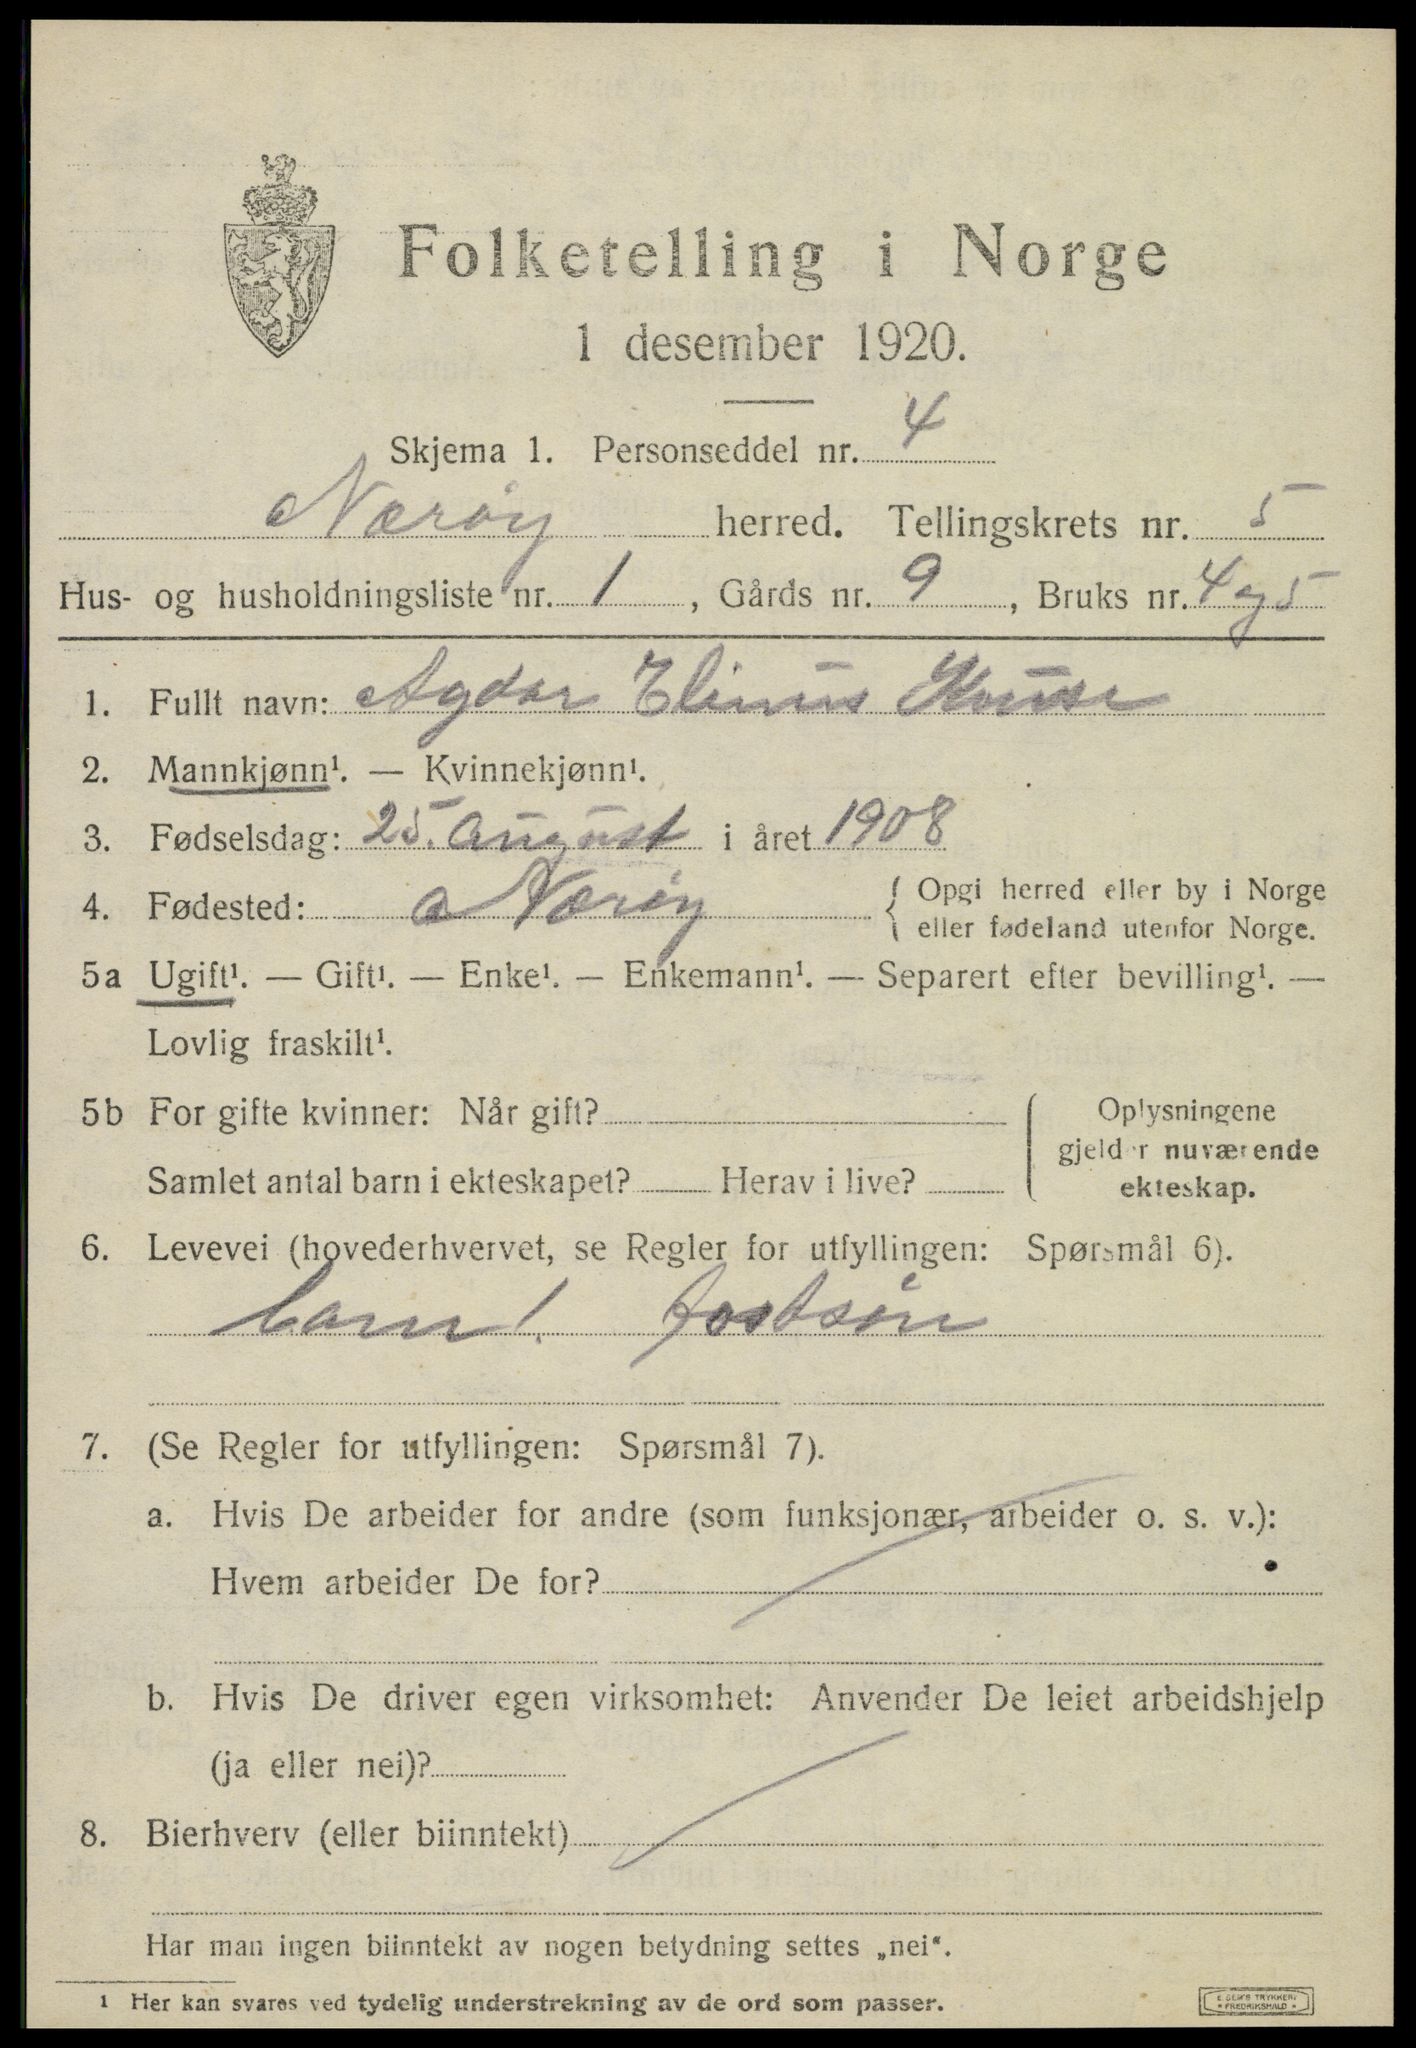 Folketelling i Norge
1 desember 1920.
Skjema 1. Personseddel nr. 4
Nærøy herred. Tellingskrets nr. 5
Hus- og husholdningsliste nr. 1, Gårds nr. 9, Bruks nr. 4 og 5
1. Fullt navn: Agdar Elinus
2. Mannkjønn¹. — Kvinnekjønn¹.
3. Fødselsdag: 25. august i året 1908
4. Fødested: Nærøy { Opgi herred eller by i Norge
eller fødeland utenfor Norge.
5a Ugift¹. — Gift¹. — Enke¹. — Enkemann¹. — Separert efter bevilling¹. —
Lovlig fraskilt¹.
5b For gifte kvinner: Når gift?
Samlet antal barn i ekteskapet? Herav i live?
Oplysningene
gjelder nuværende
ekteskap.
6. Levevei (hovederhvervet, se Regler for utfyllingen: Spørsmål 6).
barn! fostsøn
7. (Se Regler for utfyllingen: Spørsmål 7).
a. Hvis De arbeider for andre (som funksjonær, arbeider o. s. v.):
Hvem arbeider De for?
b. Hvis De driver egen virksomhet: Anvender De leiet arbeidshjelp
(ja eller nei)?
8. Bierhverv (eller biinntekt)
Har man ingen biinntekt av nogen betydning settes „nei“.
1 Her kan svares ved tydelig understrekning av de ord som passer.
E. SEMS TRYKKERI
* FREDRIKSHALD *